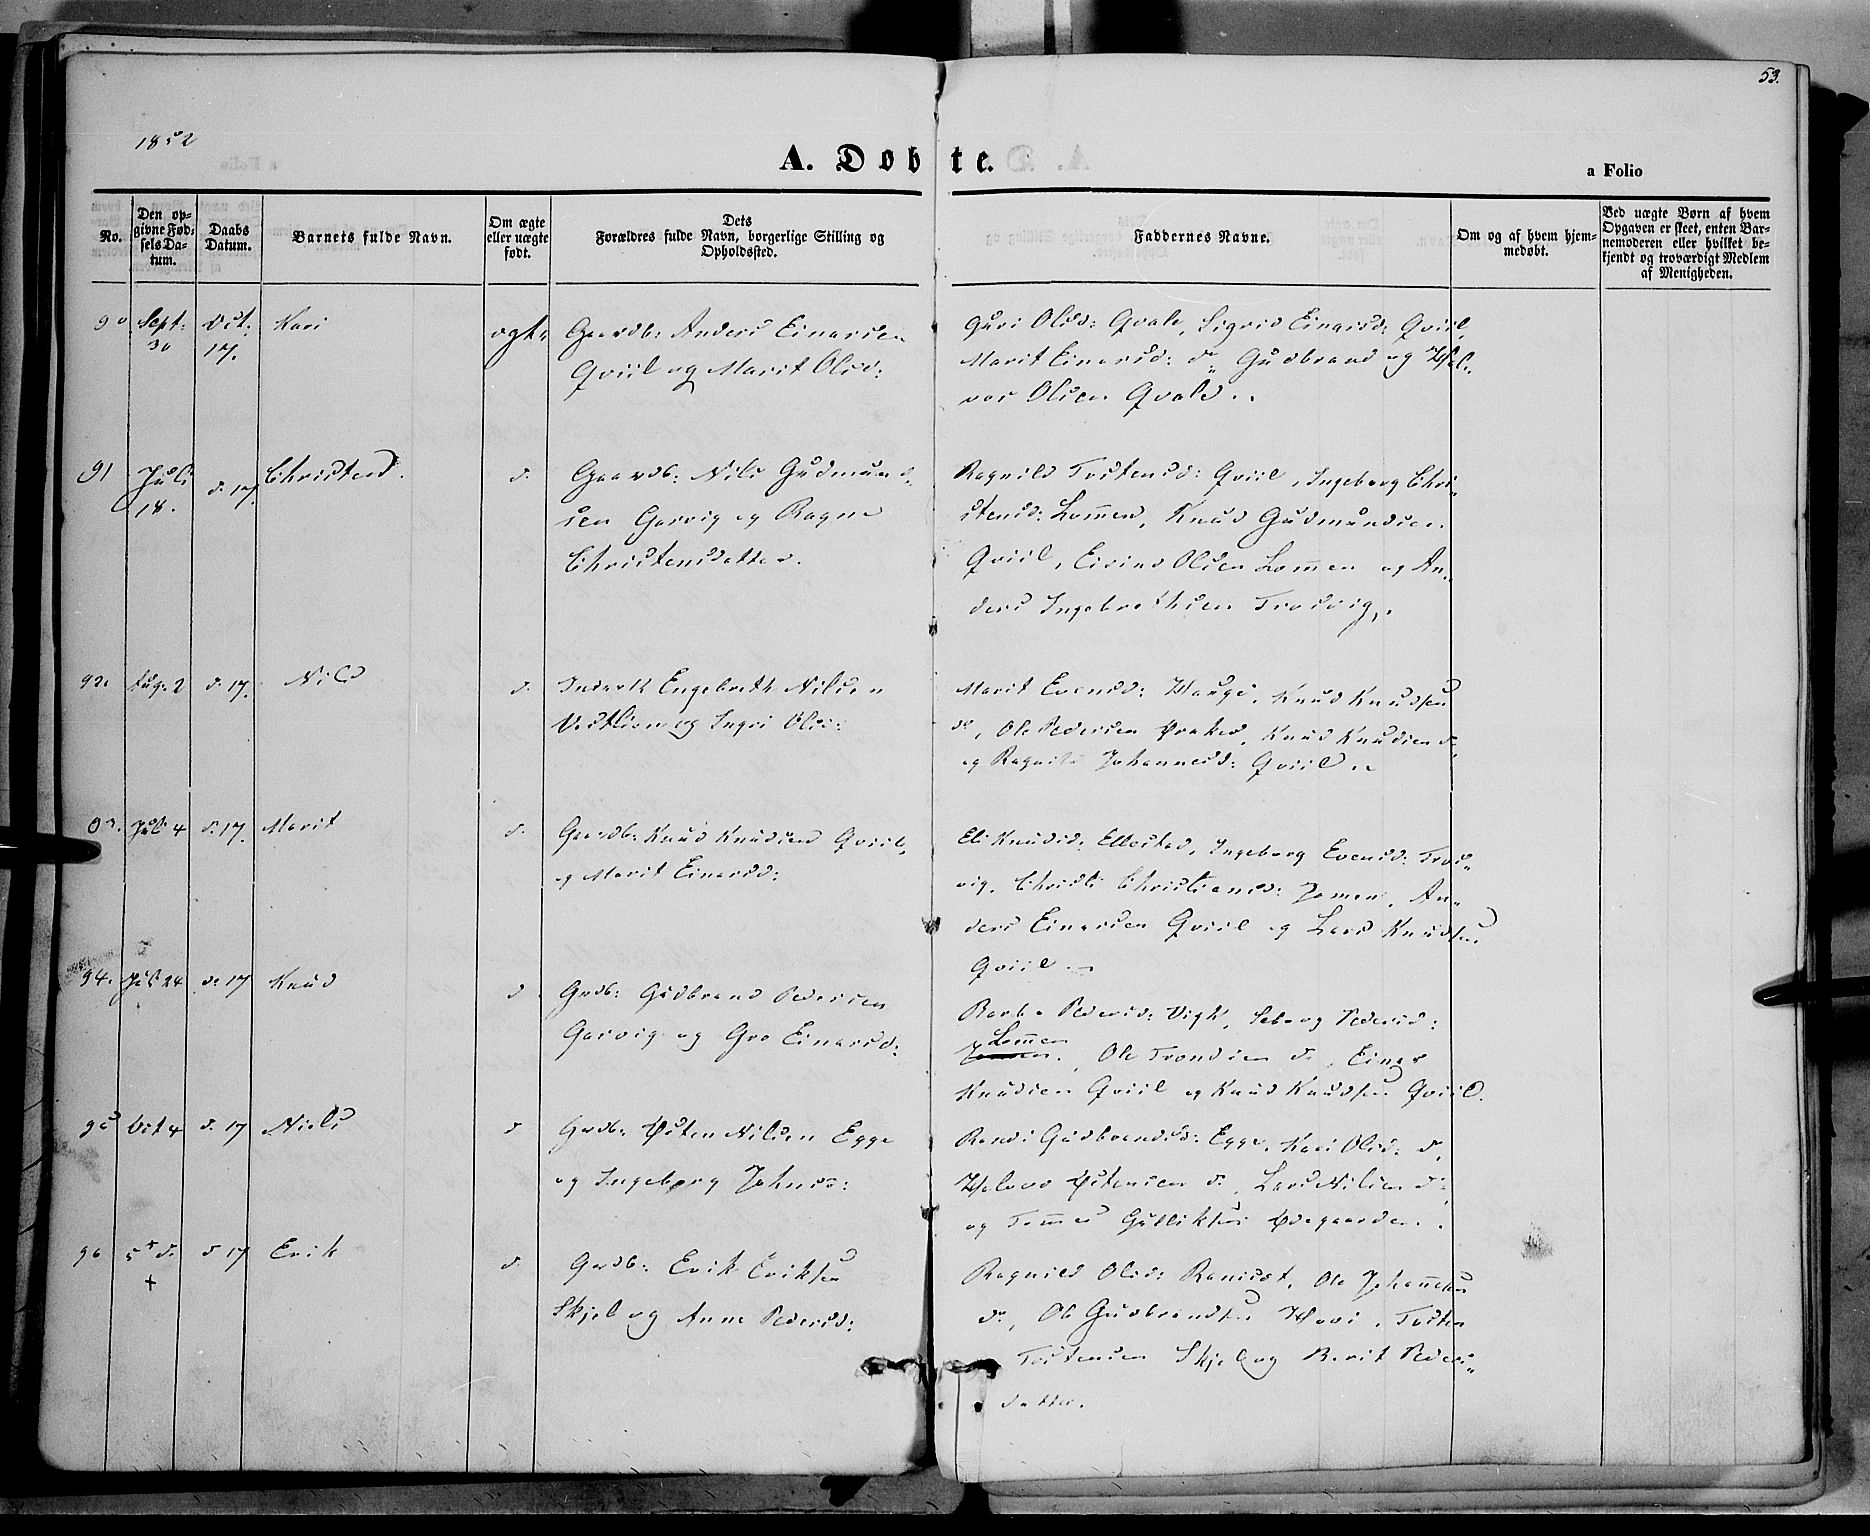 53.
1852
A. Døbte.
a Folio
No.
Den op-
givne Fød-
sels Da-
tum.
Daabs
Datum.
Barnets fulde Navn.
Om ægte
eller uægte
født.
Dets
Forældres fulde Navn, borgerlige Stilling og
Opholdssted.
Faddernes Navne.
Om og af hvem hjem-
medøbt.
Ved uægte Børn af hvem
Opgaven er skeet, enten Bar-
nemoderen eller hvilket be-
kjendt og troværdigt Medlem
af Menigheden.
90 Sept: 30 Oct. 17. Kari ægte
Gaardb: Anders Einarsen
Qviil og Marit Olsd:
Guri Olsd: Qvale, Sigrid Einarsd: Qviil,
Marit Einarsd: do Gudbrand og Hal-
vor Olsen Qvale.
91 Juli 18. d. 17. Christen d.
Gaardb: Nils Gudmund-
sen Garvig og Ragne
Christensdatter.
Ragnild Tostensd: Qviil, Ingeborg Chri-
stensd: Lommen, Knud Gudmundsen
Qviil, Eivind Olsen Lommen og An-
ders Ingebrethsen Trosvig.
92. Aug: 2 d. 17. Nils d.
Inderst Engebreth Nilsen
Vestlien og Ingri Olsd:
Marit Evensd: Hauge, Knud Knudsen
do, Ole Pedersen, Knud Knudsen d.
og Ragnild Johannesd: Qviil.
93. Juli 4 d. 17. Marit d.
Gaardb: Knud Knudsen Qviil
og Marit Einarsd:
Eli Knudsd: Ellestad, Ingeborg Evensd: Tros-
vig, Christi Christiansd: Jomen, An-
ders Einarsen Qviil og Lars Knudsen
Qviil.
94. Juli 24 d. 17 Knud d.
Grdb: Gudbrand Pedersen
Garvig og Gro Einarsd:
Barbo Pedersd: Vigk, Seborg Pedersd:
Lommen
Ole Trondsen d., Einar
Knudsen Qviil og Knud Knudsen Qviil.
95 Oct 4 d. 17 Niels d
Grdb: Østen Nilsen Egge
og Ingeborg Johnsd:
Randi Gudbrandsd: Egge, Kari Olsd: d.
Halvor Østensen d., Lars Nilsen d.
og Tommes Gulliksen Ødegaarden.
96 5t d. + d 17 Erik d.
Grdb: Erik Eriksen
Skjel og Anne Pedersd:
Ragnild Olsd: Ranisdt, Ole Johannesen
do, Ole Gudbrandsen Hovi, Tosten
Tostensen Skjel og Berit Peders-
datter.